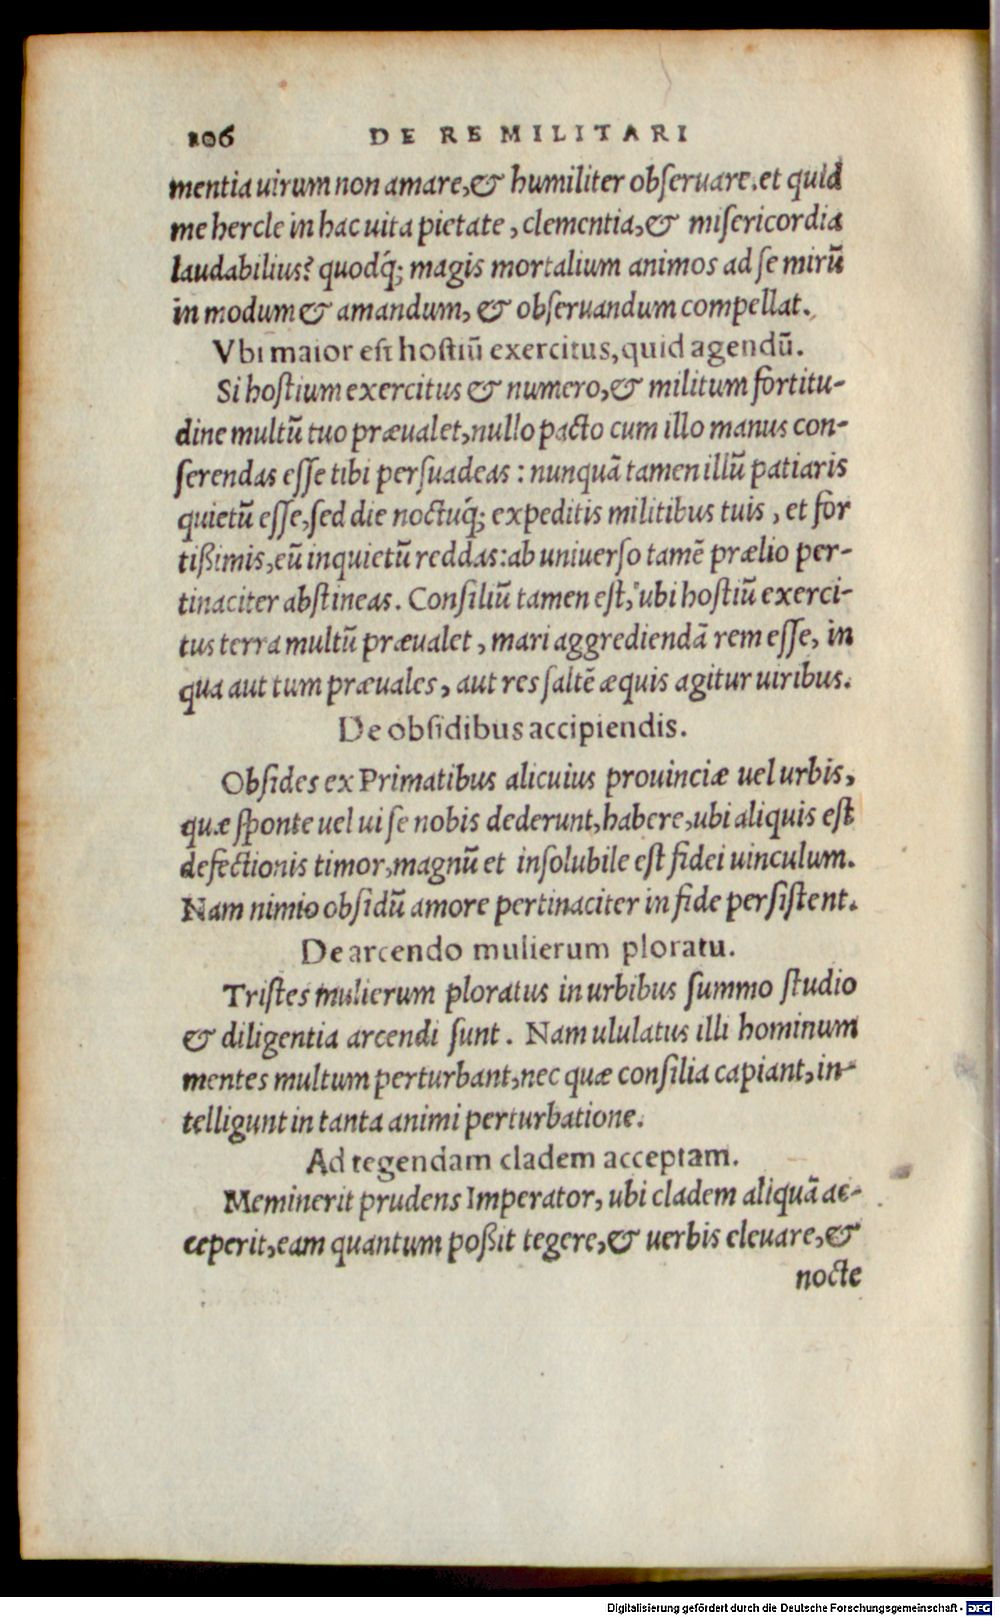 106 DE RE MILITARI
mentia uirum non amare,& humiliter obſeruare.et quid
me hercle in hac uita pietate, clementia,& miſericordia
laudabilius? quodq́; magis mortalium animos ad ſe mirũ
in modum & amandum, & obſeruandum compellat.
Vbi maior eſt hoſtiũ exercitus,quid agendũ.
Si hoſtium exercitus & numero,& militum fortitu-
dine multũ tuo præualet,nullo pacto cum illo manus con-
ſerendas eſſe tibi perſuadeas: nunquã tamen illũ patiaris
quietũ eſſe,ſed die noctuq́; expeditis militibus tuis, et for
tißimis,eũ inquietũ reddas:ab uniuerſo tamẽ prælio per-
tinaciter abſtineas. Conſiliũ tamen eſt, ubi hoſtiũ exerci-
tus terra multũ præualet, mari aggrediendã rem eſſe, in
qua aut tum præuales, aut res ſaltẽ æquis agitur uiribus.
De obſidibus accipiendis.
Obſides ex Primatibus alicuius prouinciæ uel urbis,
quæ ſponte uel ui ſe nobis dederunt,habere,ubi aliquis eſt
defectionis timor,magnũ et inſolubile eſt fidei uinculum.
Nam nimio obſidũ amore pertinaciter in fide perſiſtent.
De arcendo mulierum ploratu.
Triſtes mulierum ploratus in urbibus ſummo ſtudio
& diligentia arcendi ſunt. Nam ululatus illi hominum
mentes multum perturbant,nec quæ conſilia capiant,in-
telligunt in tanta animi perturbatione.
Ad tegendam cladem acceptam.
Meminerit prudens Imperator, ubi cladem aliquã ac-
ceperit,eam quantum poßit tegere,& uerbis eleuare,&
nocte
Digitalisierung gefördert durch die Deutsche Forschungsgemeinschaft - DFG